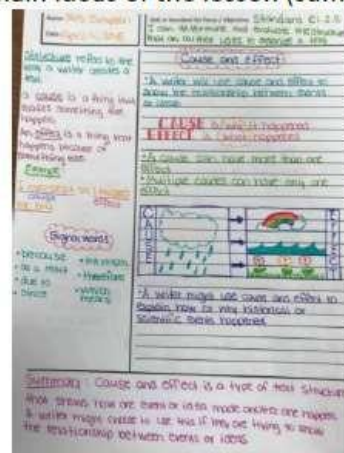 main ideas of the lesson
Name:
Standard
I can determine and evaluate the structure
that an author uses to organize a text
Cause and effect
structure refers to the
way a writer creates a
text
a cause is a thing that
makes something else
happen
An effect is a thing that
happens because of
something else
Example
Signal words
• because
• as a result
• due to
• since
• therefore
• which
means
• A writer will use cause and effect to
show the relationship between events
or ideas
CAUSE is why it happened
EFFECT is what happened
• A cause can have more than one
effect
• Multiple causes can have only one
effect
CAUSE
EFFECT
• A writer might use cause and effect to
explain how or why historical or
scientific events happened
Summary: Cause and effect is a type of text structure
that shows how one event or idea made another one happen
A writer might choose to use this if they are trying to show
the relationship between events or ideas